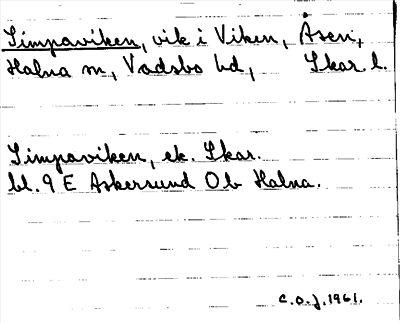 Simpaviken, vik i Viken, Åsen,
Halna sn, Vadsbo hd, Skar. l.
Simpaviken, ek. Skar.
bl. 9 E Askersund Ob Halna.
C.O.J. 1961.